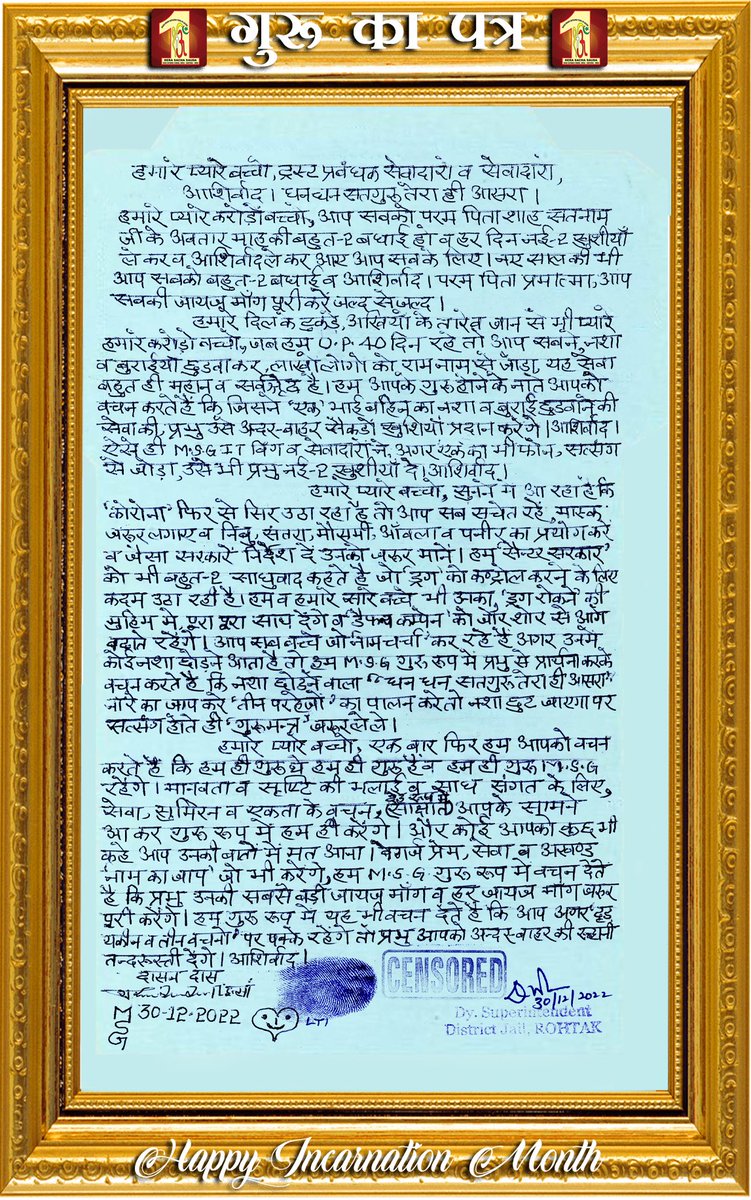 गुरु का पत्र
हमारे प्यारे बच्चों, ट्रस्ट प्रबंधक सेवादारों व सेवादारों,
आशिर्वाद। धन धन सतगुरु तेरा ही आसरा।
हमारे प्यारे करोड़ों बच्चों, आप सबको परम पिता शाह सतनाम
जी के अवतार माह की बहुत-2 बधाई हो व हर दिन नई-2 खुशीयाँ
ले कर व आशिर्वाद ले कर आए आप सब के लिए। नए साल की भी
आप सबको बहुत-2 बधाई व आशिर्वाद। परम पिता प्रमात्मा, आप
सबकी जायज़ माँग पूरी करें जल्द से जल्द।
हमारे दिल के टुकड़े, अखियाँ के तारे व जान से भी प्यारे
हमारे करोड़ों बच्चों, जब हम U.P. 40 दिन रहे तो आप सबने, नशा
व बुराईयाँ छुडवा कर, लाखों लोगों को, राम नाम से जोड़ा, यह सेवा
बहुत ही महान व सर्वश्रेष्ठ है। हम आपके गुरु होने के नाते आपको
वचन करते हैं कि जिसने 'एक' भाई बहिन का नशा व बुराई छुडवाने की
सेवा की, प्रभु उसे अन्दर-बाहर सैकड़ों खुशियाँ प्रदान करेंगे। आशिर्वाद।
ऐसे ही M.S.G IT विंग व सेवादारों ने, अगर एक का भी फोन, सत्संग
से जोड़ा, उसे भी प्रभु नई-2 खुशीयाँ दे। आशिर्वाद।
हमारे प्यारे बच्चों, सुनने में आ रहा है कि
'कोरोना' फिर से सिर उठा रहा है तो आप सब सचेत रहें, मास्क
जरुर लगाए व निंबू, संतरा, मौसमी, आँवला व पनीर का प्रयोग करें
व जैसा सरकारें निर्देश दें उनको जरुर मानें। हम 'सेन्टर सरकार'
को भी बहुत-2 साधुवाद कहते हैं जो 'ड्रग' को कन्ट्रोल करने के लिए
कदम उठा रही है। हम व हमारे सारे बच्चे भी उनका, 'ड्रग रोकने' की
मुहिम में, पूरा पूरा साथ देंगे व 'डैफ्थ कम्पेन' को जोर शोर से आगे
बढ़ाते रहेंगे। आप सब बच्चे जो 'नाम चर्चा' कर रहे हैं अगर उनमें
कोई नशा छोड़ने आता है तो हम M.S.G गुरु रूप में प्रभु से प्रार्थना करके
वचन करते हैं, कि नशा छोडने वाला "धन धन सतगुरु तेरा ही आसरा"
नारे का जाप करे 'तीन परहेजों' का पालन करे तो नशा छुट जाएगा पर
सत्संग होते ही 'गुरुमन्त्र' जरुर ले ले।
हमारे प्यारे बच्चों, एक बार फिर हम आपको वचन
करते हैं कि हम ही गुरु थे हम ही गुरु हैं व हम ही, गुरु M.S.G
रहेंगे। मानवता व सृष्टि की भलाई व साध संगत के लिए,
सेवा, सुमिरन व एकता के वचन, साक्षात आपके सामने
आ कर गुरु रूप में हम ही करेंगे। और कोई आपको कुछ भी
कहे आप उनकी बातों में मत आना। बेगर्ज प्रेम, सेवा व अखण्ड
'नाम का जाप' जो भी करेंगे, हम M.S.G गुरु रूप में वचन देते
हैं कि प्रभु उनकी सबसे बड़ी जायज माँग व हर जायज माँग जरुर
पूरी करेंगे। हम गुरु रूप में यह भी वचन देते हैं कि आप अगर 'दृढ़
यकीन व तीन वचनों' पर पक्के रहेंगे तो प्रभु आपको अन्दर-बाहर की खुशी
तन्दरूस्ती देंगे। आशिर्वाद।
दासन दास
MSG 30-12-2022
LTI
CENSORED
30/12/2022
Dy. Superintendent
District Jail, ROHTAK
Happy Incarnation Month